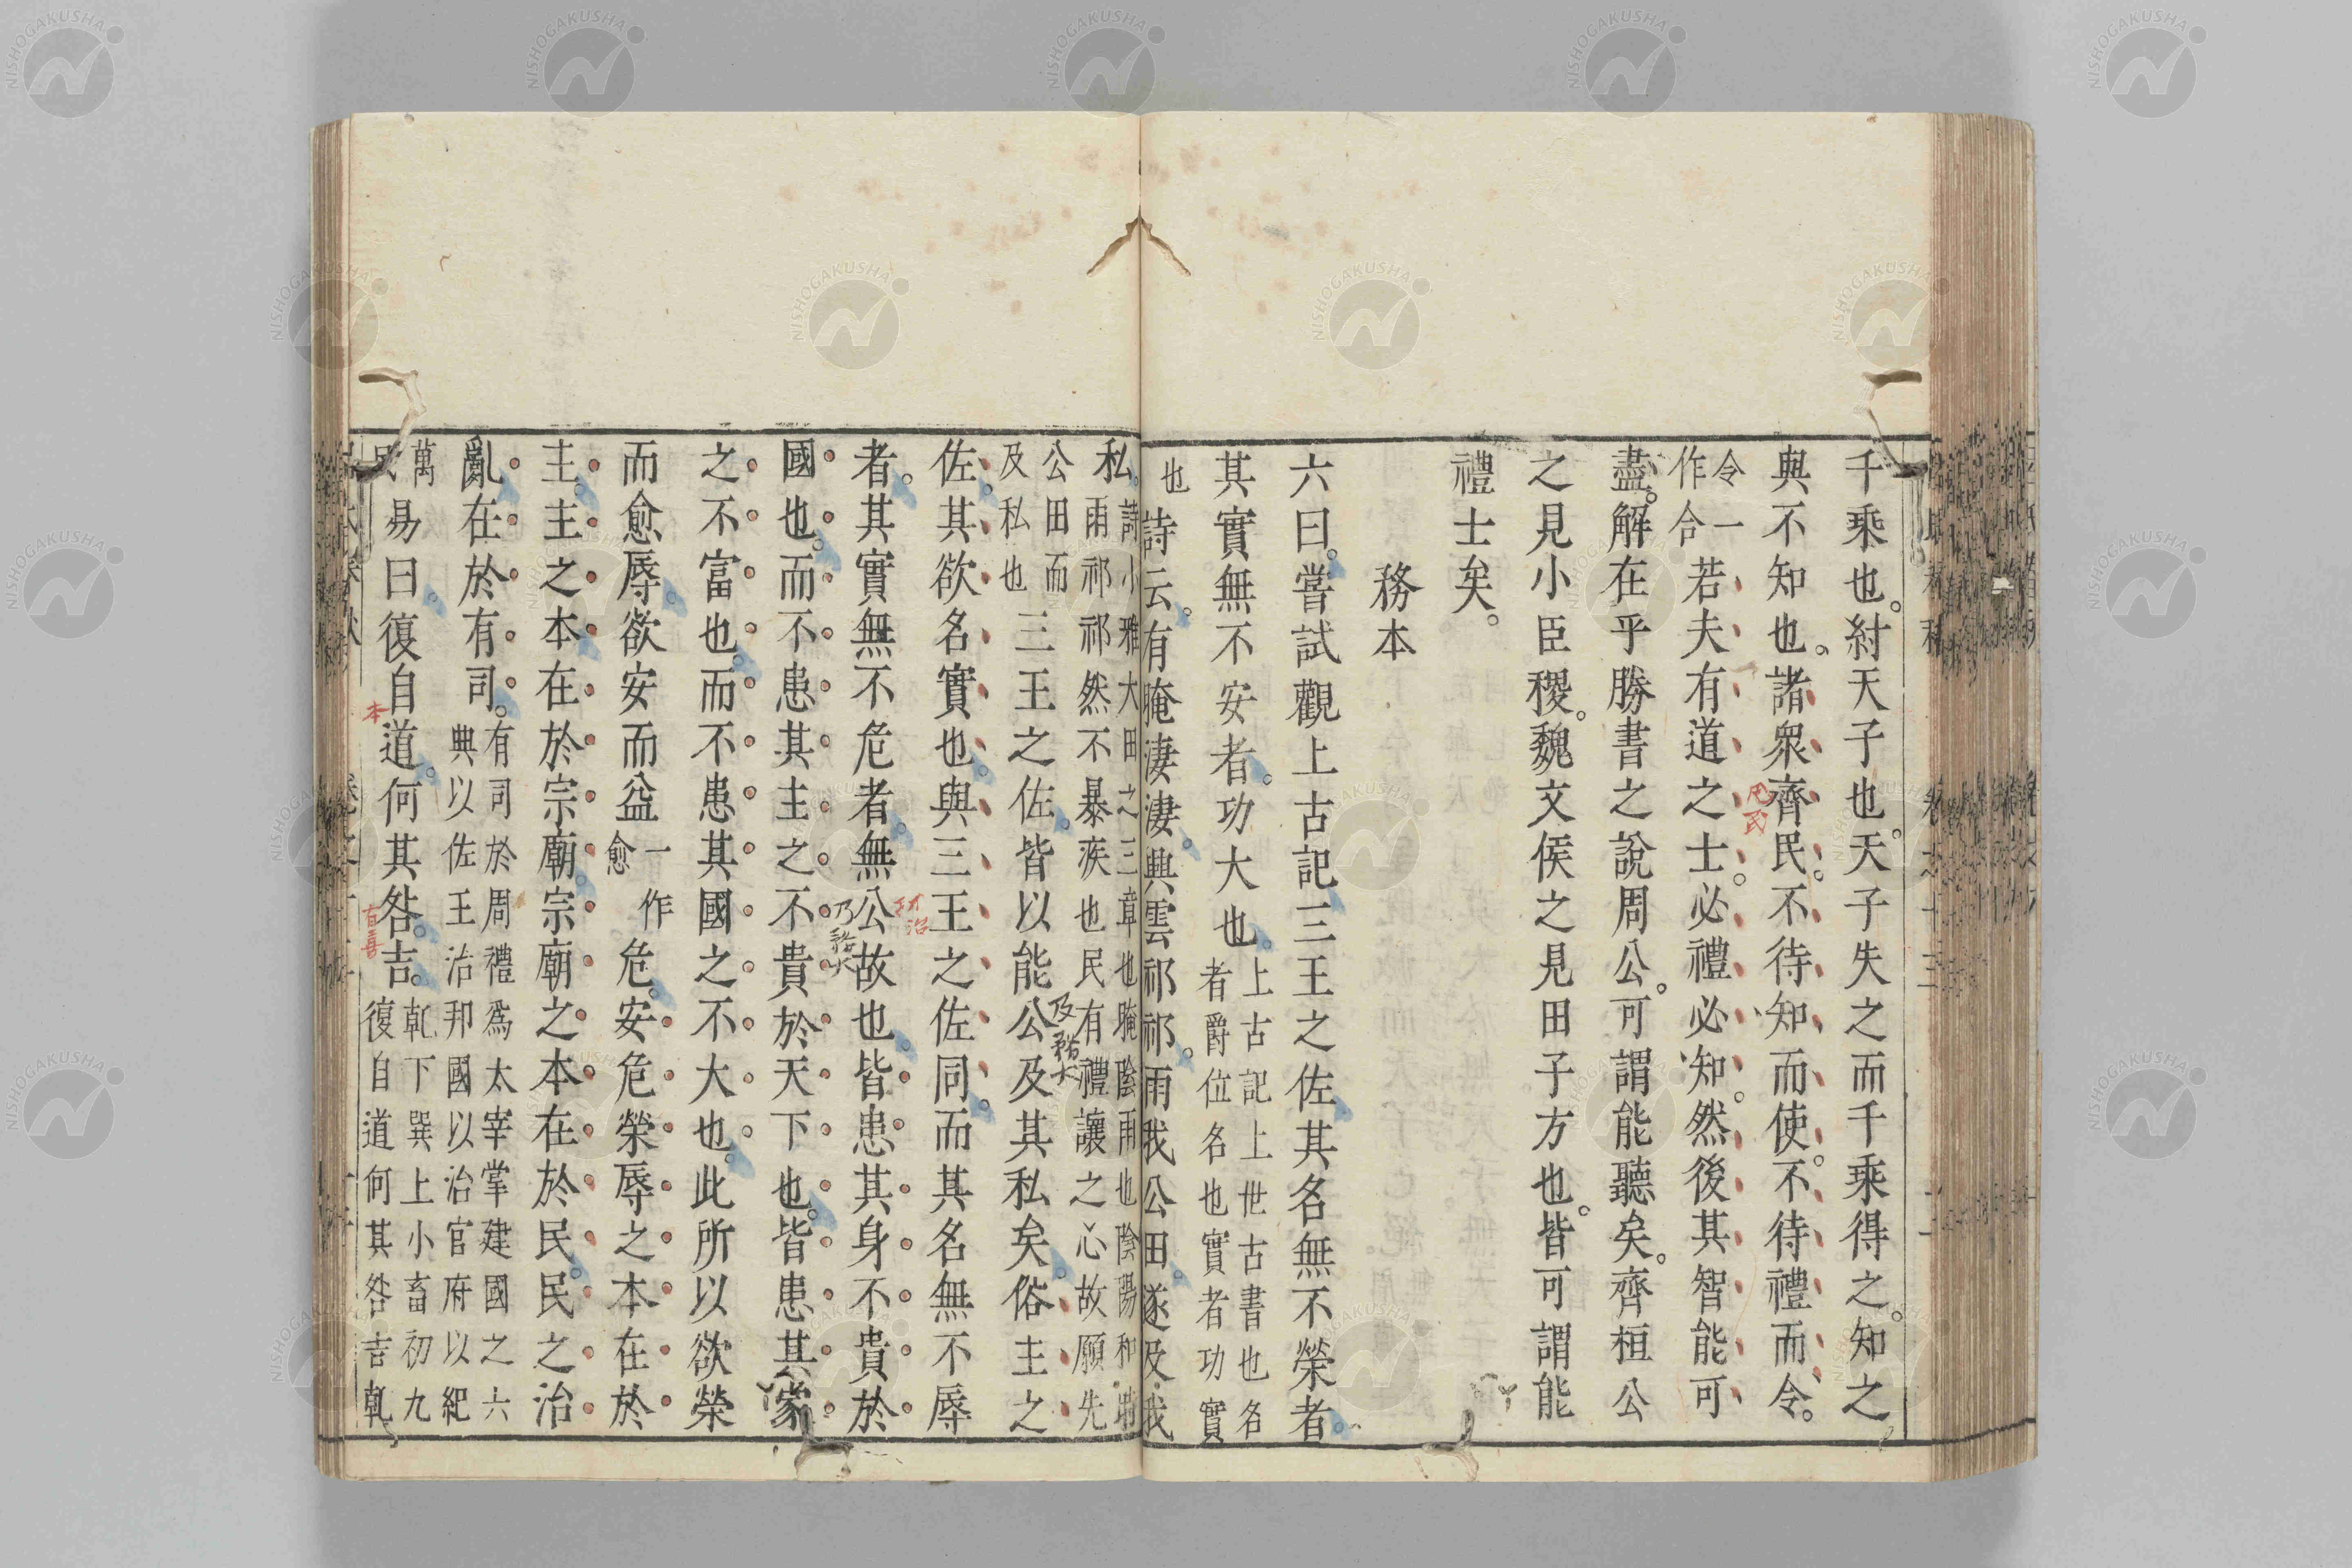 千乘也。紂天子也。天子失之而千乘得之。知之
與不知也。諸衆齊民。不待知而使。不待禮而令。
令一
作合
若夫有道之士。必禮必知。然後其智能可
盡。解在乎勝書之說周公。可謂能聽矣。齊桓公
之見小臣稷。魏文侯之見田子方也。皆可謂能
禮士矣。
務本
六曰。嘗試觀上古記。三王之佐。其名無不榮者。
其實無不安者。功大也。
上古記上世古書也名
者爵位名也實者功實
也
詩云。有晻淒淒。興雲祁祁。雨我公田。遂及我
私。
詩小雅大田之三章也晻陰雨也陰陽和時
雨祁祁然不暴疾也民有禮讓之心故願先
公田而
及私也
三王之佐。皆以能公及其私矣。俗主之
佐。其欲名實也。與三王之佐同。而其名無不辱
者。其實無不危者。無公故也。皆患其身不貴於
國也。而不患其主之不貴於天下也。皆患其家
之不富也。而不患其國之不大也。此所以欲榮
而愈辱。欲安而益
一作
愈
危。安危榮辱之本在於
主。主之本在於宗廟。宗廟之本在於民。民之治
亂在於有司。
有司於周禮爲太宰掌建國之六
典以佐王治邦國以治官府以紀
萬
民
易曰。復自道。何其咎。吉。
乾下巽上小畜初九
復自道何其咎吉乾
本
有喜
NISHOGAKUSHA